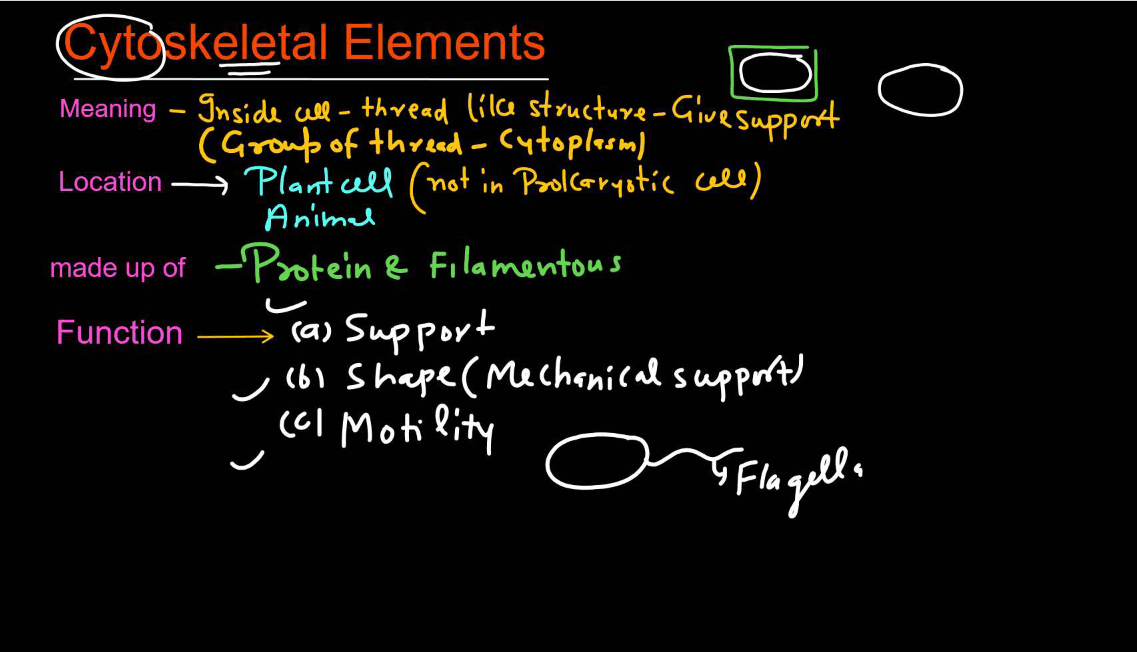 Cytoskeletal Elements
Meaning - Inside cell - thread like structure - Give support
(Group of thread - Cytoplasm)
Location → Plant cell (not in Prokaryotic cell)
Animal
made up of - Protein & Filamentous
Function → (a) Support
(b) Shape (Mechanical support)
(c) Motility
Flagella